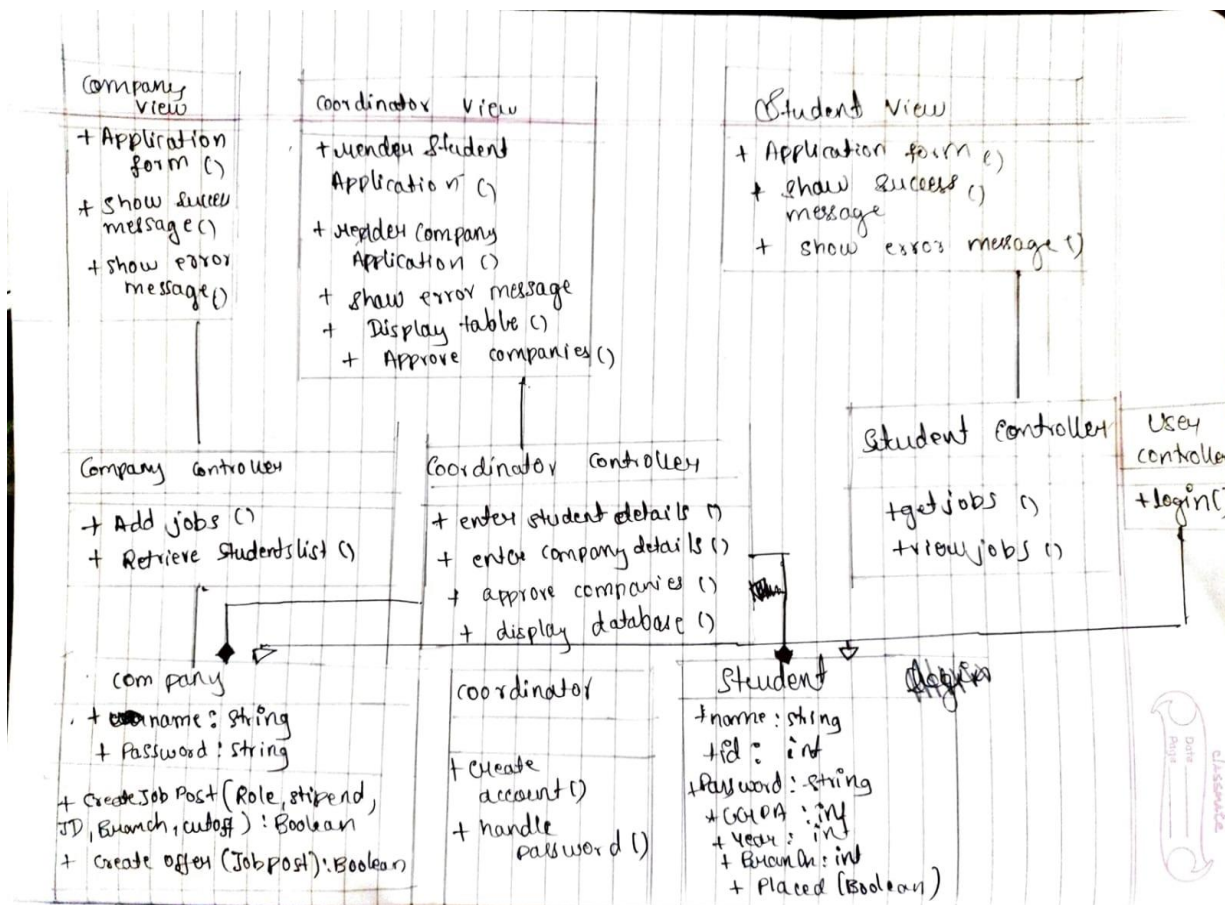 Company
View
+ Application
form ()
+ show succes
message()
+ show error
message()
Coordinator View
+ render Student
Application ()
+ render Company
Application ()
+ show error message
+ Display table ()
+ Approve companies ()
Student View
+ Application form ()
+ show success ()
message
+ show error message ()
Company controller
+ Add jobs ()
+ Retrieve Studentslist ()
Coordinator Controller
+ enter student details ()
+ enter company details ()
+ approve companies ()
+ display database ()
Student Controller
+getjobs ()
+viewjobs ()
User
controller
+login()
company
+ name : string
+ Password : string
+ CreateJobPost (Role, stipend,
JD, Branch, cutoff) : Boolean
+ Create offer (Jobpost) : Boolean
coordinator
+ Create
account ()
+ handle
password ()
Student
+name : string
+id : int
+Password : string
+ CGPA : int
+ Year : int
+ Branch : int
+ Placed (Boolean)
classmate
Date
Page